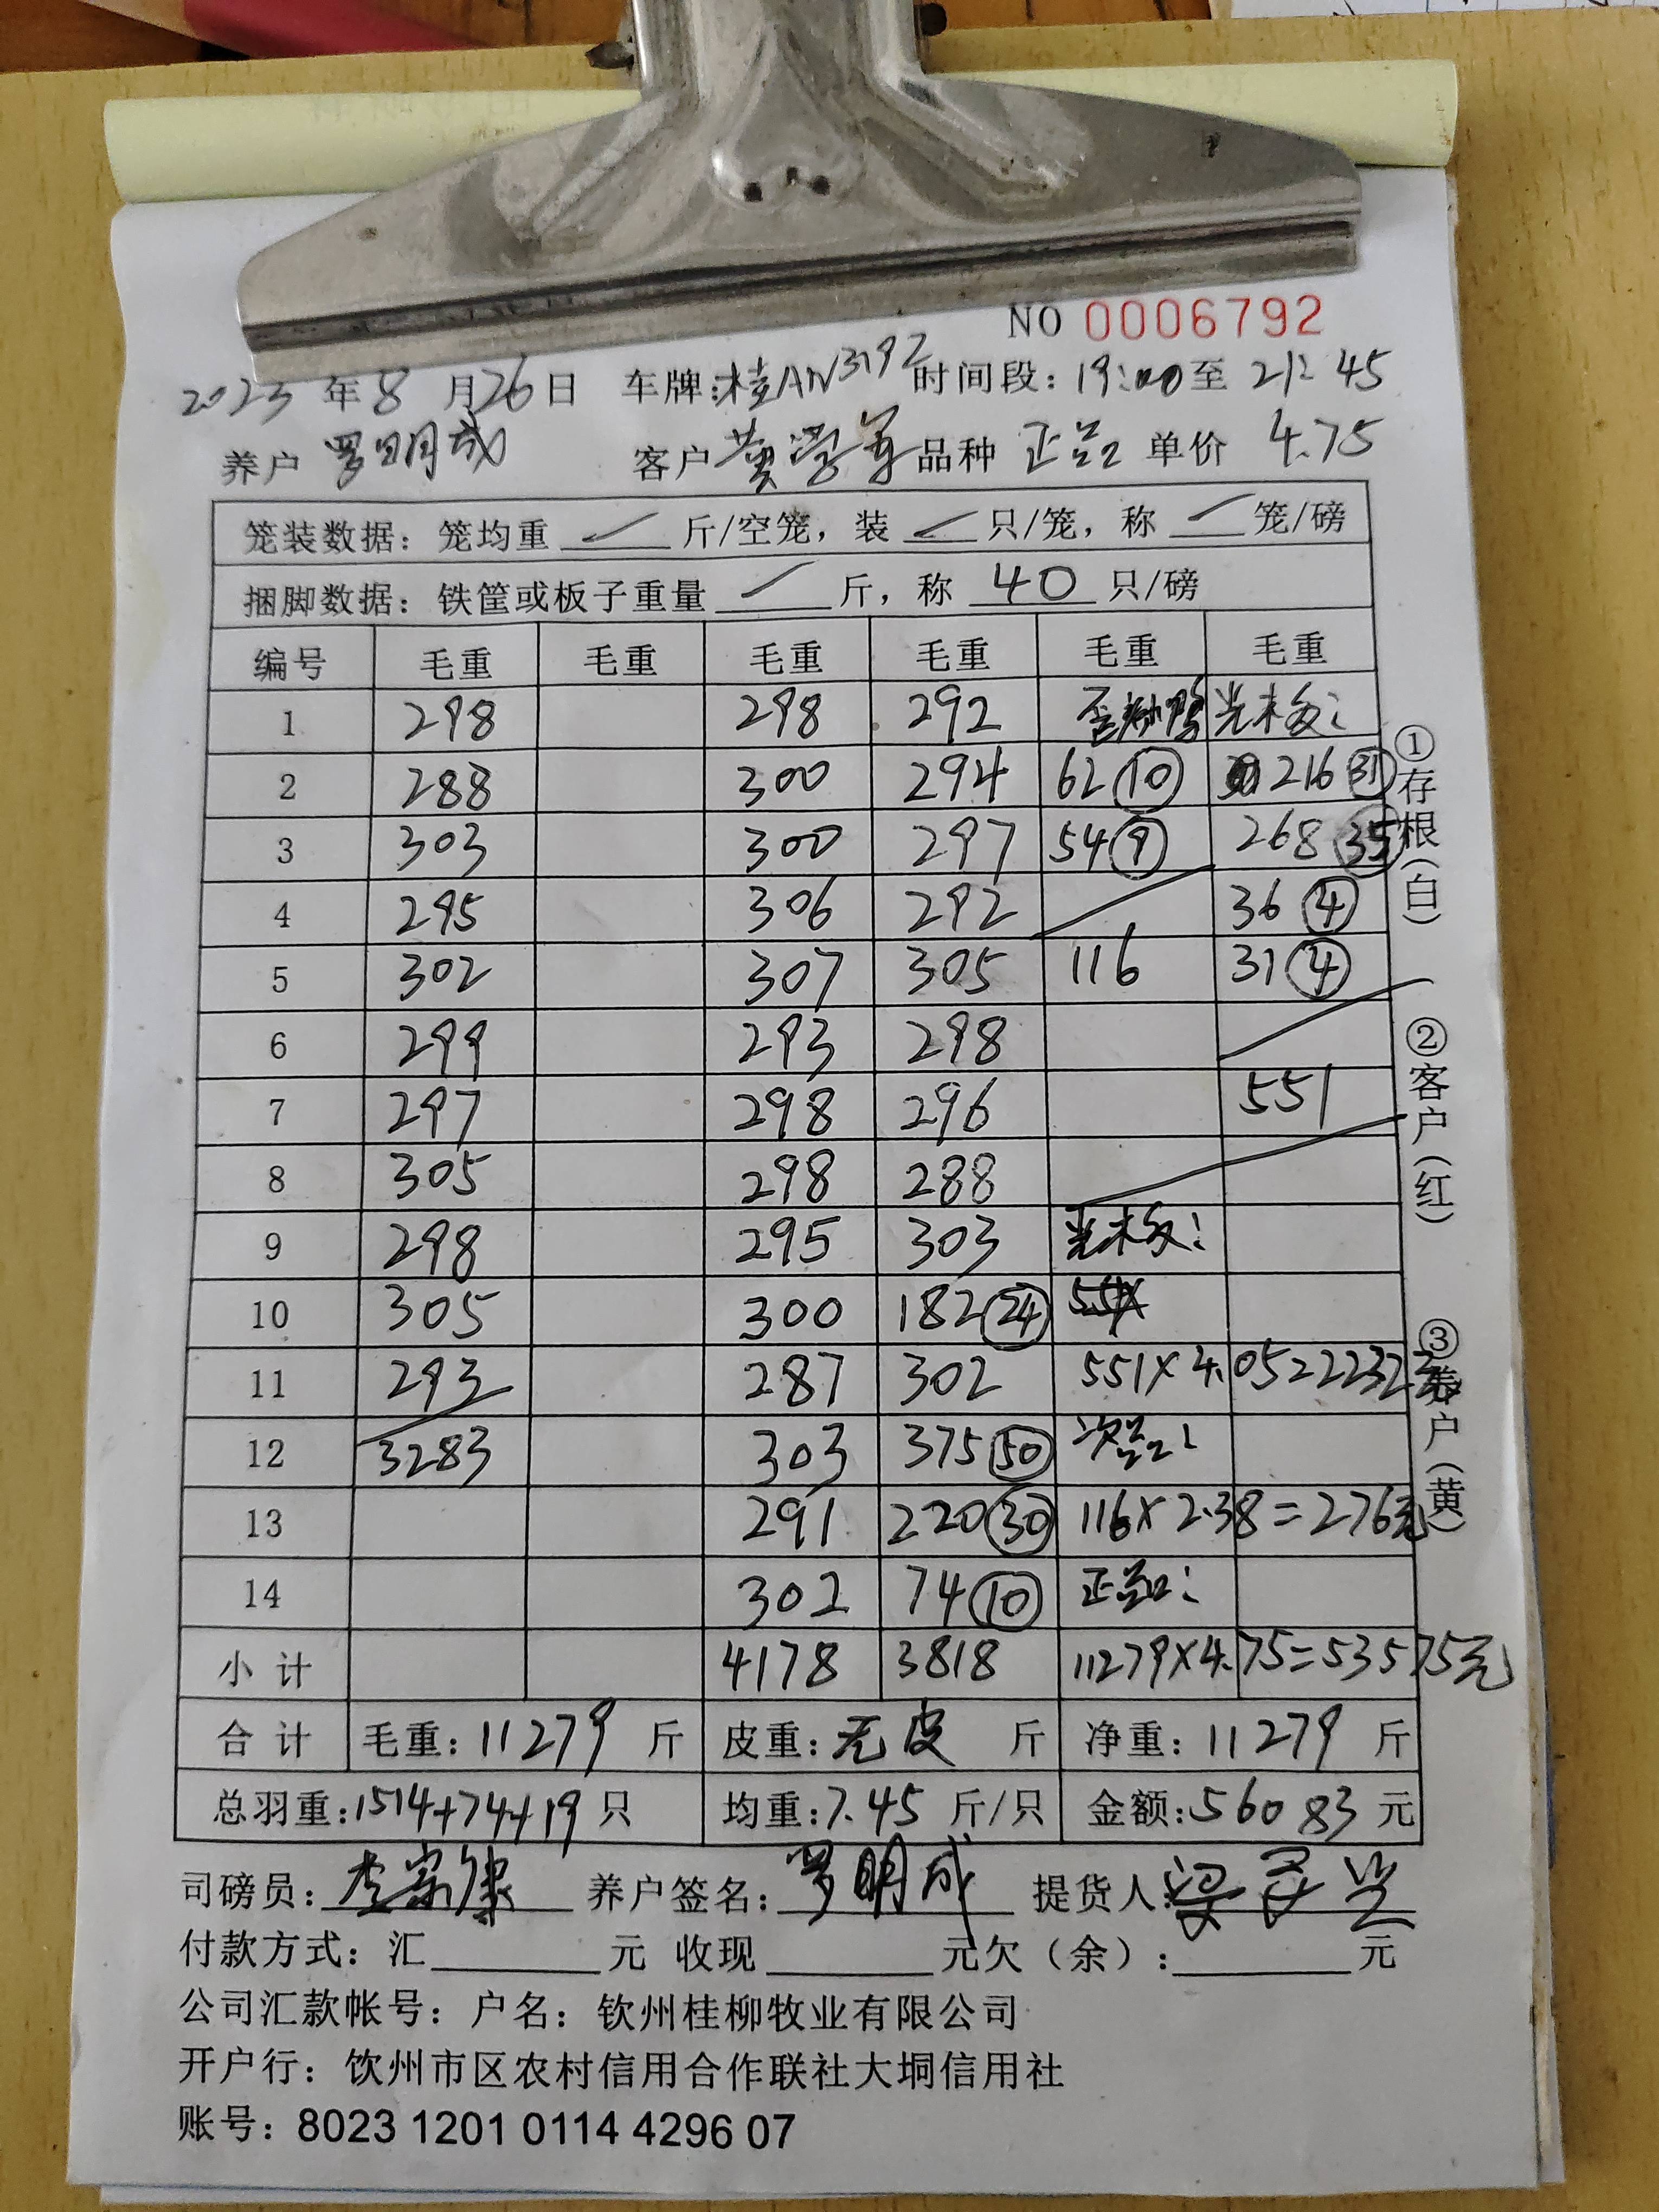 NO 0006792
2023 年 8 月 26 日 车牌:桂AN3192 时间段: 19:00 至 21:45
养户 罗明成 客户 黄学军 品种 正品 单价 4.75
笼装数据: 笼均重 斤/空笼, 装 只/笼, 称 笼/磅
捆脚数据: 铁筐或板子重量 斤, 称 40 只/磅
编号 毛重 毛重 毛重 毛重 毛重 毛重
1 298 298 292
2 288 300 294 62 ⑩ 216 ㉛
3 303 300 297 54 ⑨ 268 ㉟
4 295 306 292 36 ④
5 302 307 305 116 31 ④
6 299 293 298
7 297 298 296 551
8 305 298 288
9 298 295 303
10 305 300 182 ㉔
11 293 287 302 551×4.05=2232元
12 3283 303 375 ㊿ 次品:
13 291 220 ㉚ 116×2.38=276元
14 302 74 ⑩ 正品:
小计 4178 3818 11279×4.75=53575元
合计 毛重: 11279 斤 皮重: 无皮 斤 净重: 11279 斤
总羽重: 1514+74+19 只 均重: 7.45 斤/只 金额: 56083 元
①存根(白)
②客户(红)
③养户(黄)
司磅员: 李富康 养户签名: 罗明成 提货人:
付款方式: 汇 元 收现 元欠(余): 元
公司汇款帐号: 户名: 钦州桂柳牧业有限公司
开户行: 饮州市区农村信用合作联社大垌信用社
账号: 8023 1201 0114 4296 07